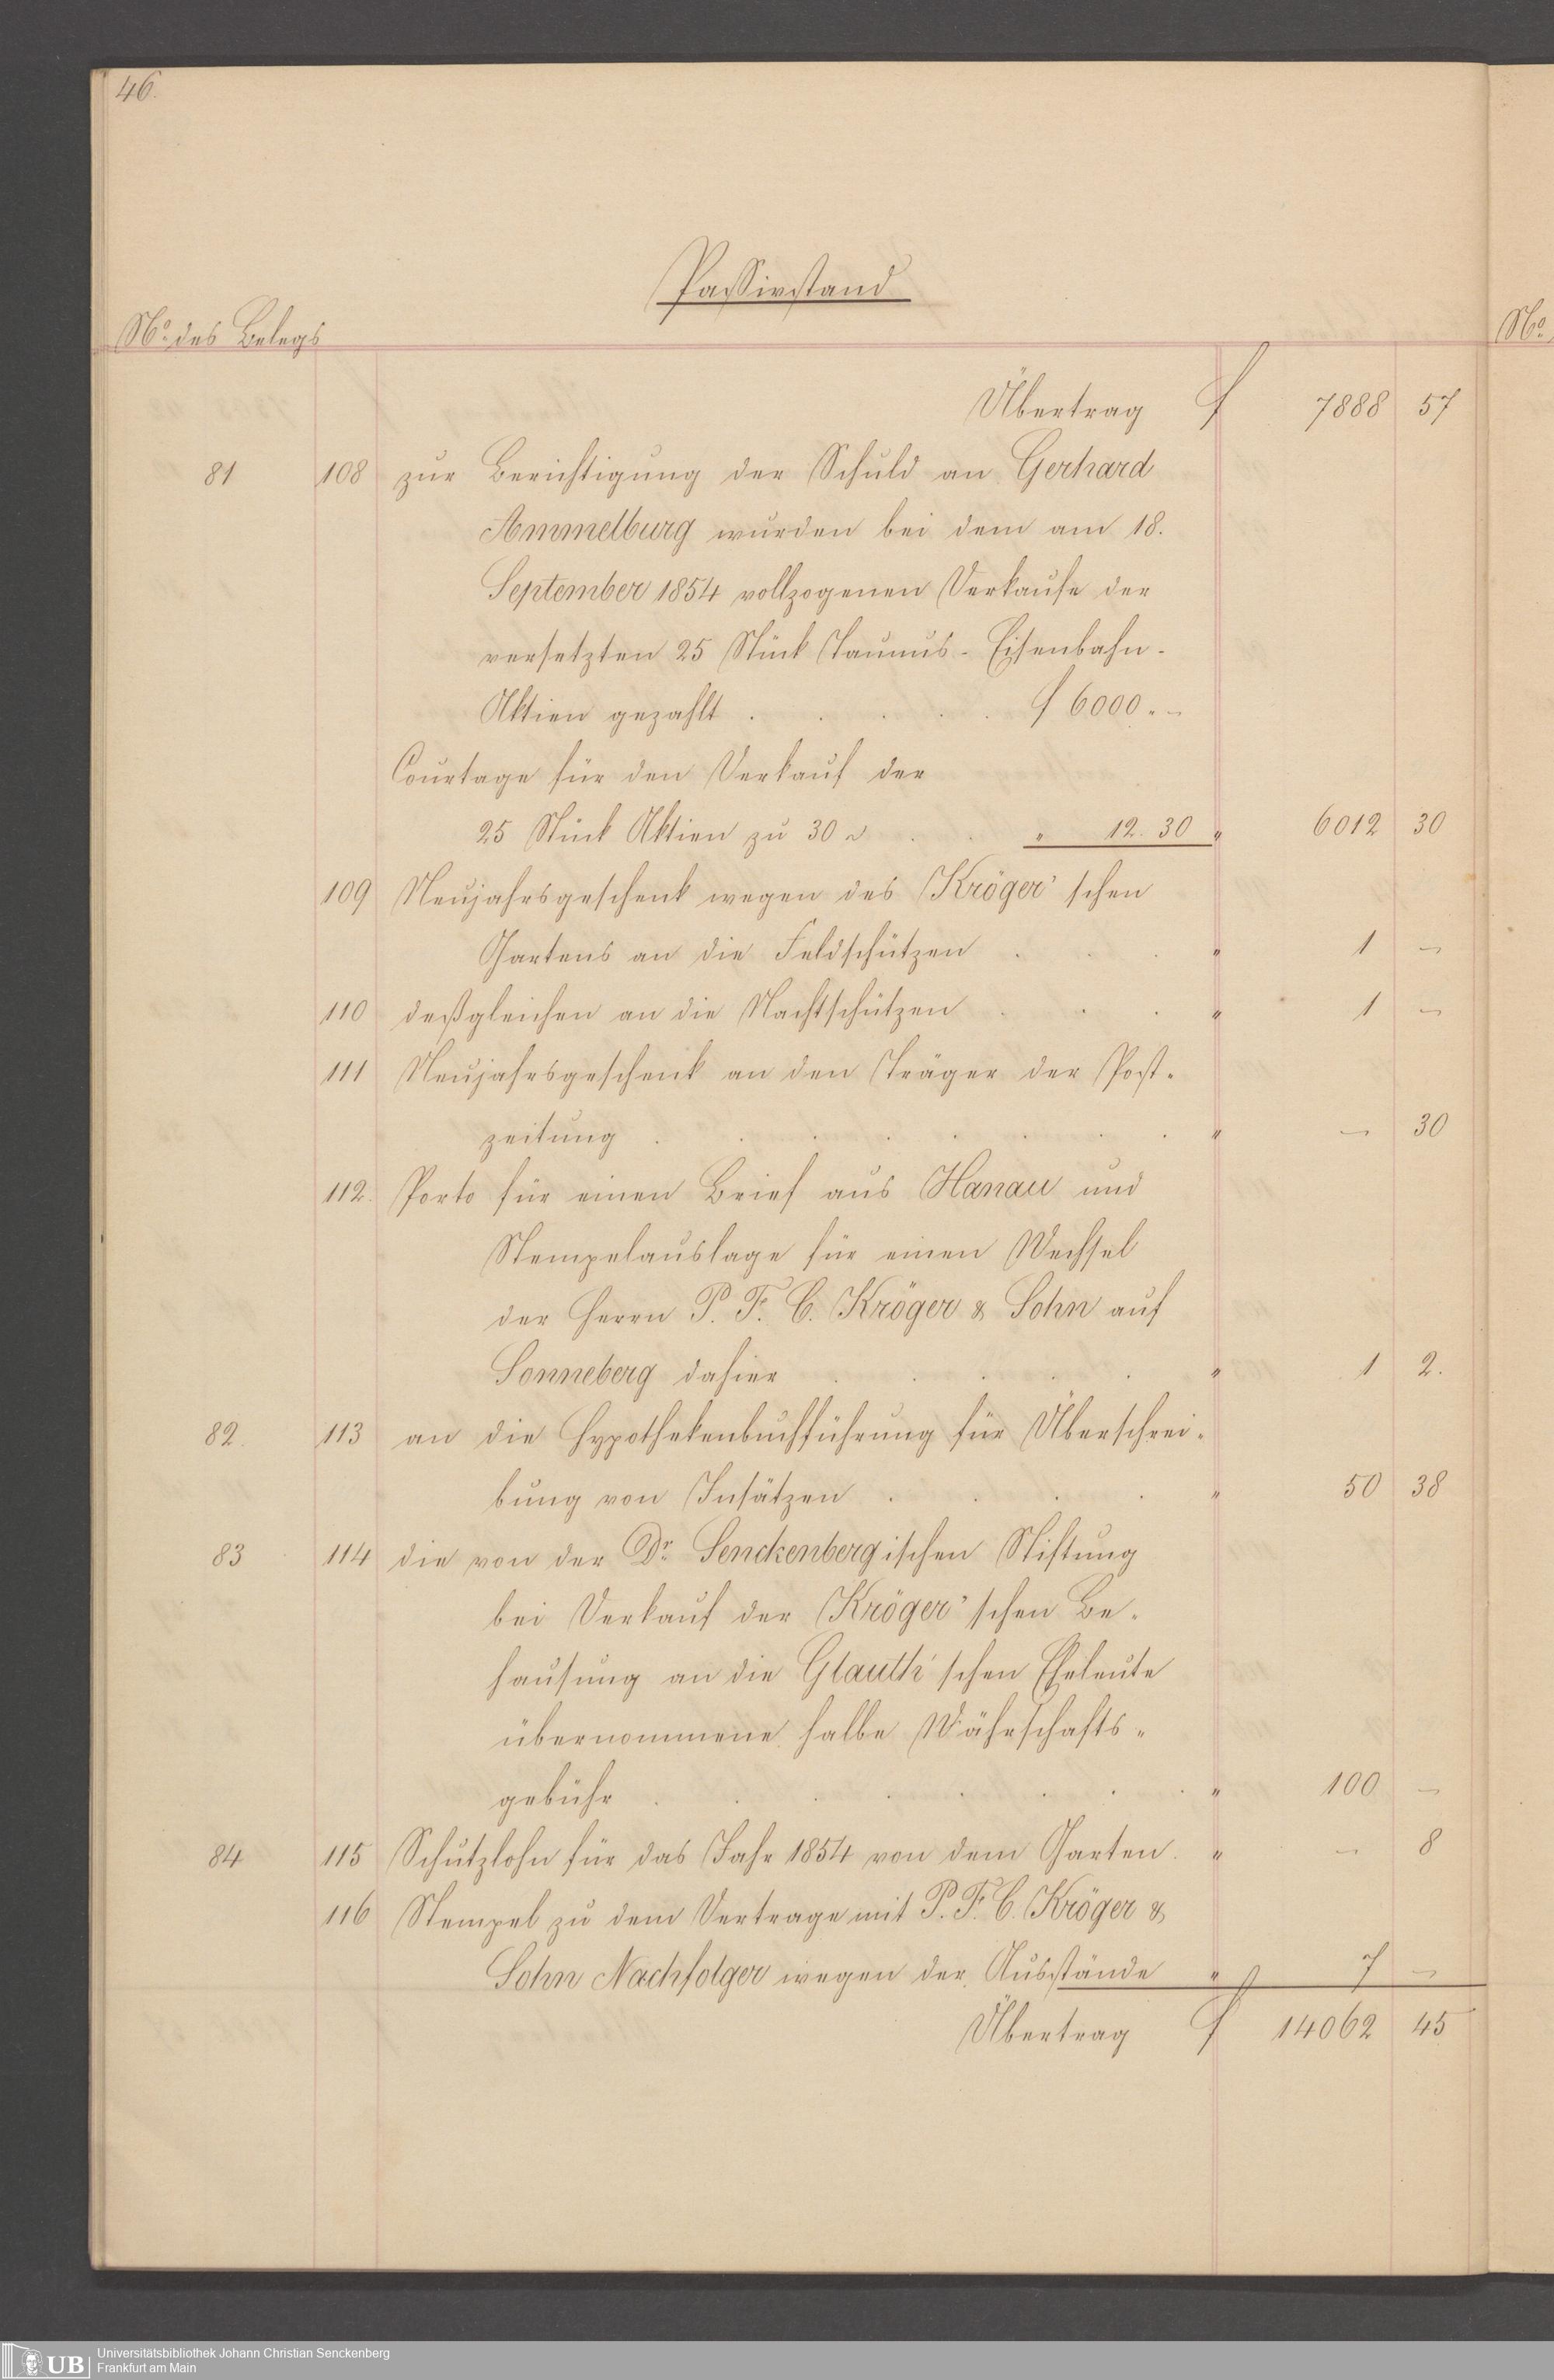 46.
Passivstand
No. des Belegs
No.
Übertrag f 7888 57
81 108 zur Berichtigung der Schuld an Gerhard
Ammelburg wurden bei dem am 18.
September 1854 vollzogenen Verkaufe der
versetzten 25 Stück Taunus-Eisenbahn-
Aktien gezahlt . . . . . f 6000. -
Courtage für den Verkauf der
25 Stück Aktien zu 30 x . . " 12. 30 " 6012 30
109 Neujahrsgeschenk wegen des Kröger'schen
Gartens an die Feldschützen . . . " 1 -
110 deßgleichen an die Nachtschützen . . . " 1 -
111 Neujahrsgeschenk an den Träger der Post-
zeitung . . . . . . . . " - 30
112. Porto für einen Brief aus Hanau und
Stempelauslage für einen Wechsel
der Herrn P. F. C. Kröger & Sohn auf
Sonneberg dahier . . . . . " 1 2.
82. 113 an die Hypothekenbuchführung für Überschrei-
bung von Insätzen . . . . " 50 38
83 114 die von der Dr. Senckenbergischen Stiftung
bei Verkauf der Kröger'schen Be-
hausung an die Glauth'schen Eheleute
übernommene halbe Währschafts-
gebühr . . . . . . . . " 100 -
84 115 Schutzlohn für das Jahr 1854 von dem Garten . " - 8
116 Stempel zu dem Vertrage mit P. F. C. Kröger &
Sohn Nachfolger wegen der Ausstände " 7 -
Übertrag f 14062 45
UB
Universitätsbibliothek Johann Christian Senckenberg
Frankfurt am Main